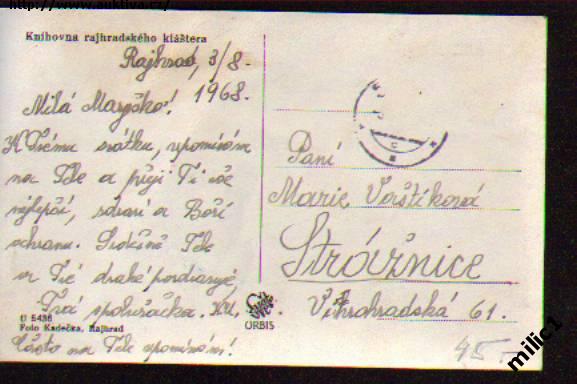 http://www.auktiva.cz/
Knihovna rajhradského kláštera
Rajhrad, 3/8.
1968.
Milá Maryško!
K Tvému svátku, vzpomínám
na Tebe a přeji Ti vše
nejlepší, zdraví a Boží
ochranu. Srdečně Tebe
a Tvé drahé pozdravuje
Tvá spolužačka.
U 5436
Foto Kadečka, Rajhrad
Často na Tebe vzpomínám!
ORBIS
Paní
Marie
Strážnice
61.
45.-
milic1